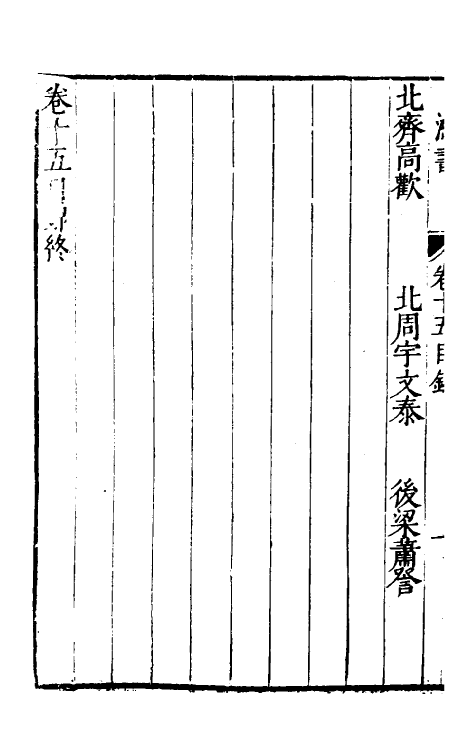 書 卷十五目錄 一
北齊高歡 北周宇文泰 後梁蕭詧
卷十五目錄終